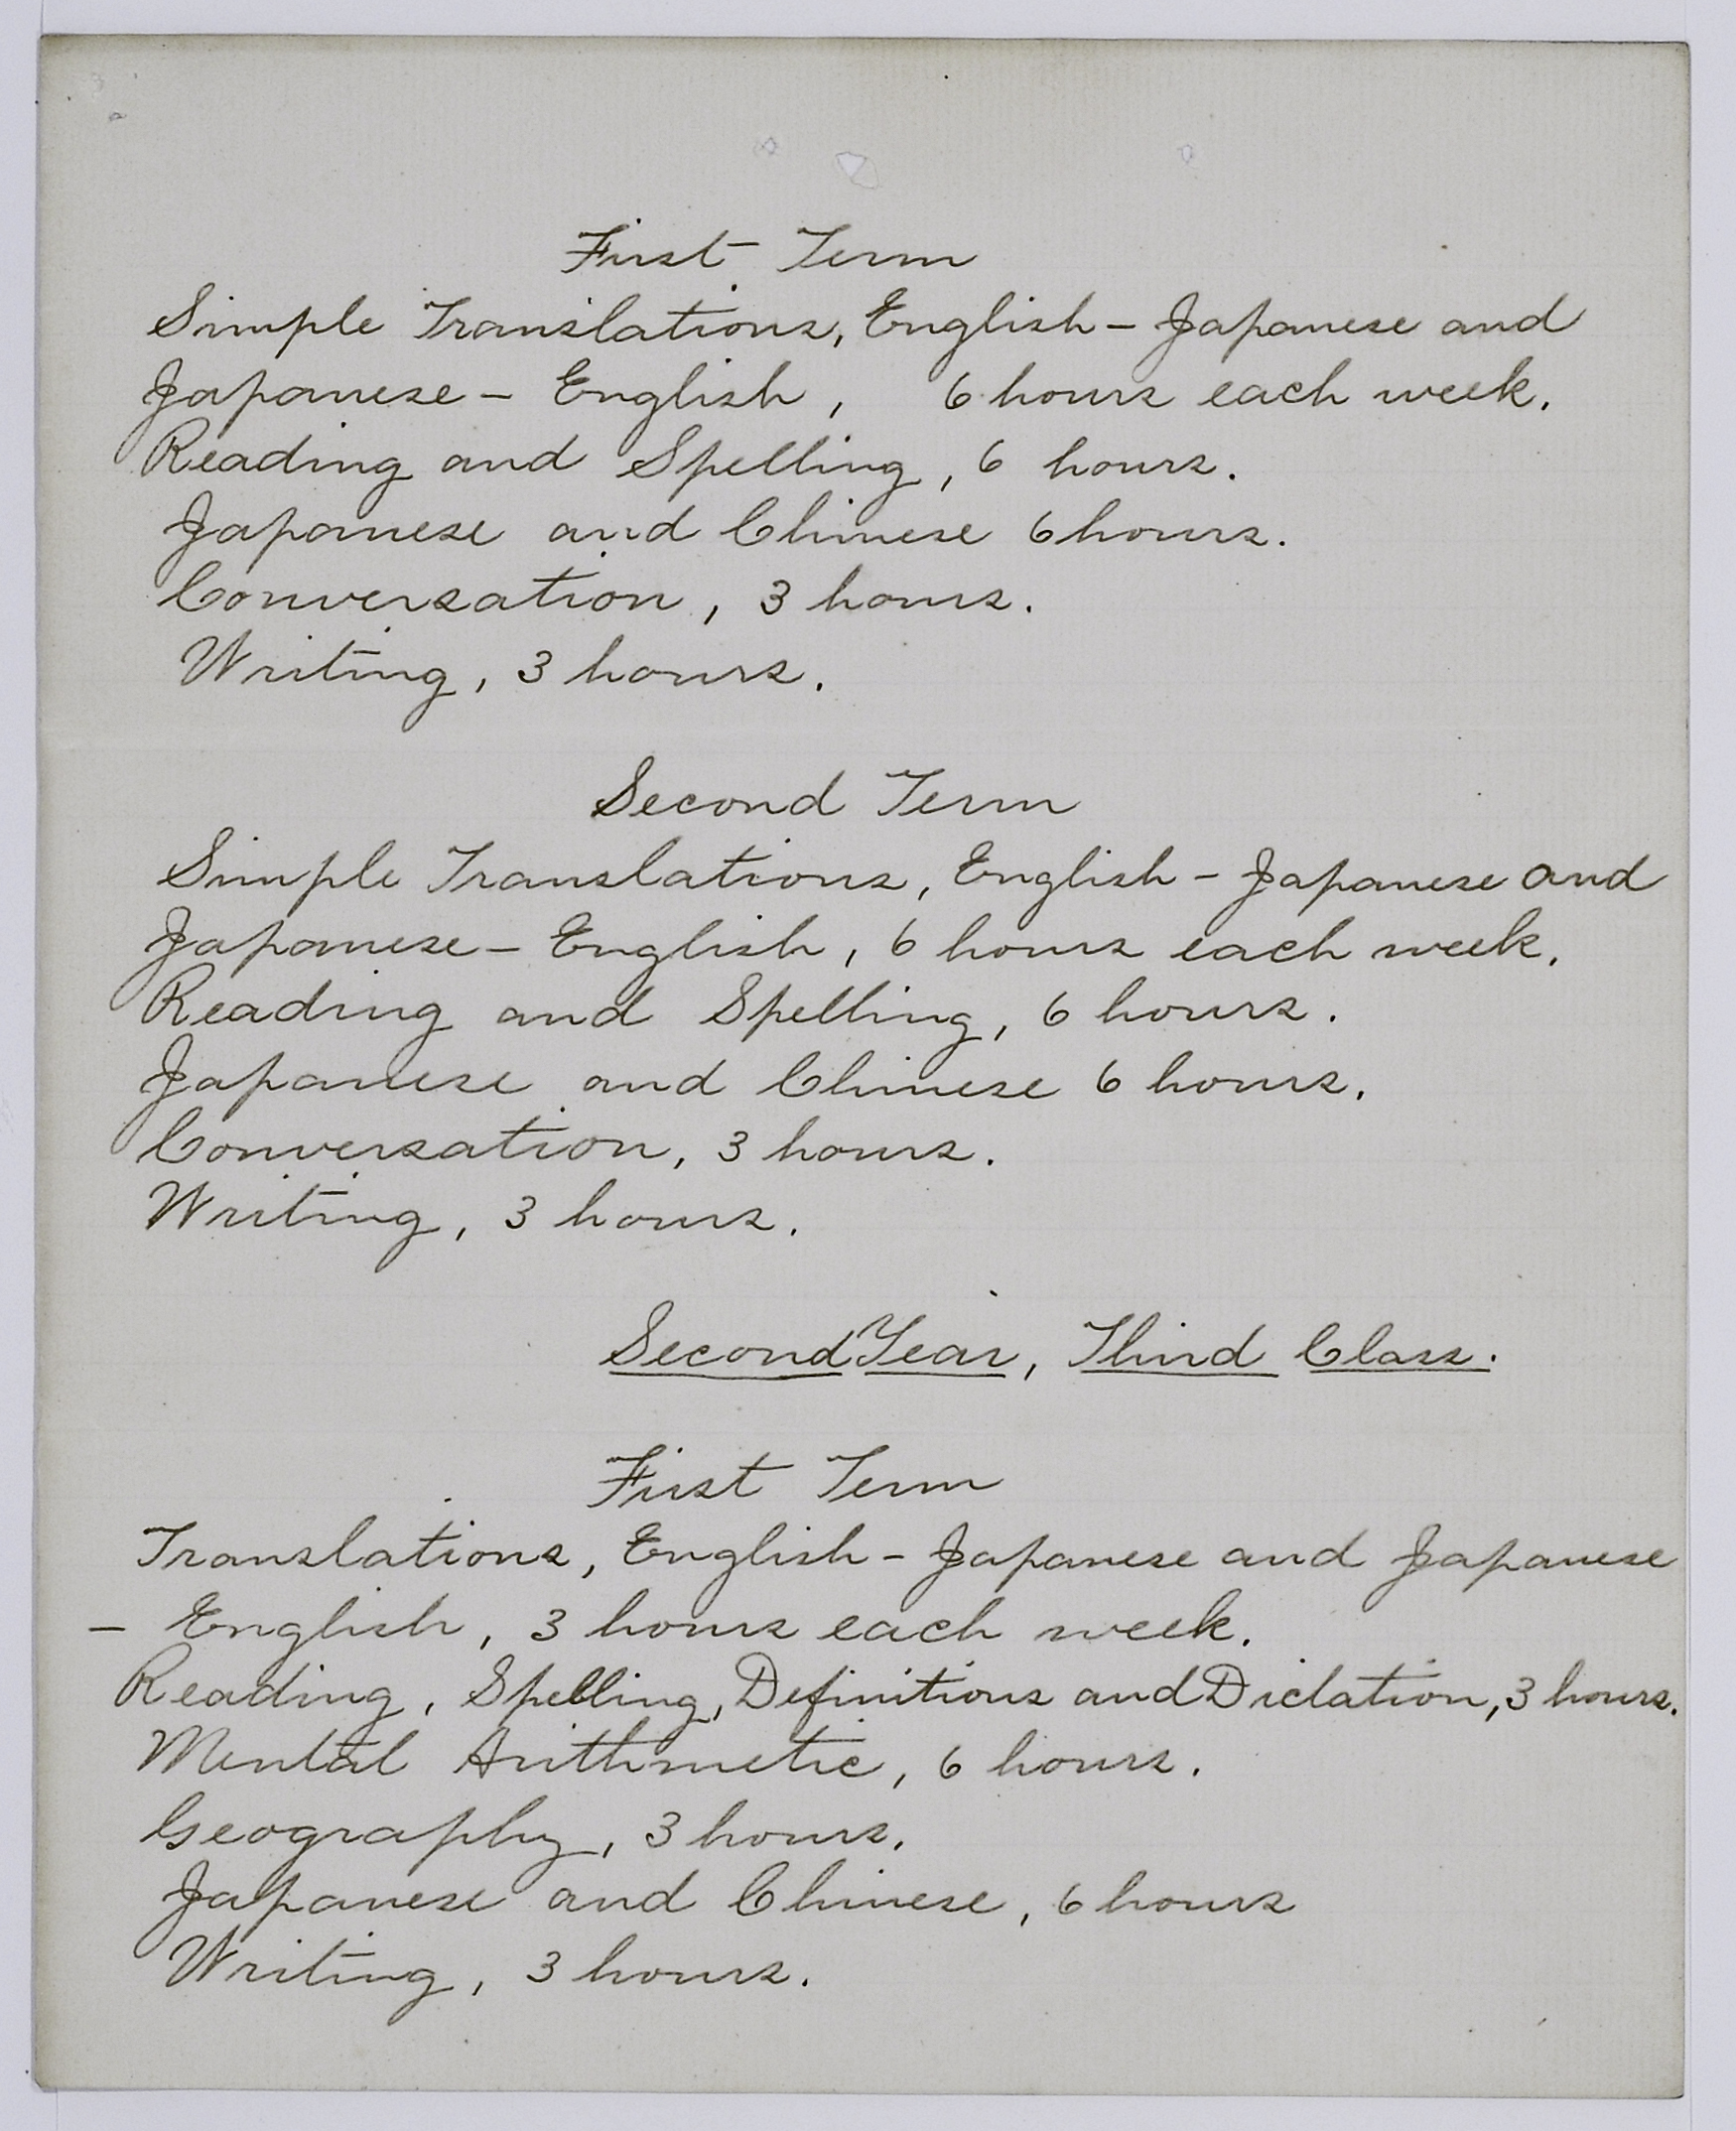 First Term
Simple Translations, English - Japanese and
Japanese - English, 6 hours each week.
Reading and Spelling, 6 hours.
Japanese and Chinese 6 hours.
Conversation, 3 hours.
Writing, 3 hours.
Second Term
Simple Translations, English - Japanese and
Japanese - English, 6 hours each week.
Reading and Spelling, 6 hours.
Japanese and Chinese 6 hours.
Conversation, 3 hours.
Writing, 3 hours.
Second Year, Third Class.
First Term
Translations, English - Japanese and Japanese
- English, 3 hours each week.
Reading, Spelling, Definitions and Dictation, 3 hours.
Mental Arithmetic, 6 hours.
Geography, 3 hours.
Japanese and Chinese, 6 hours
Writing, 3 hours.